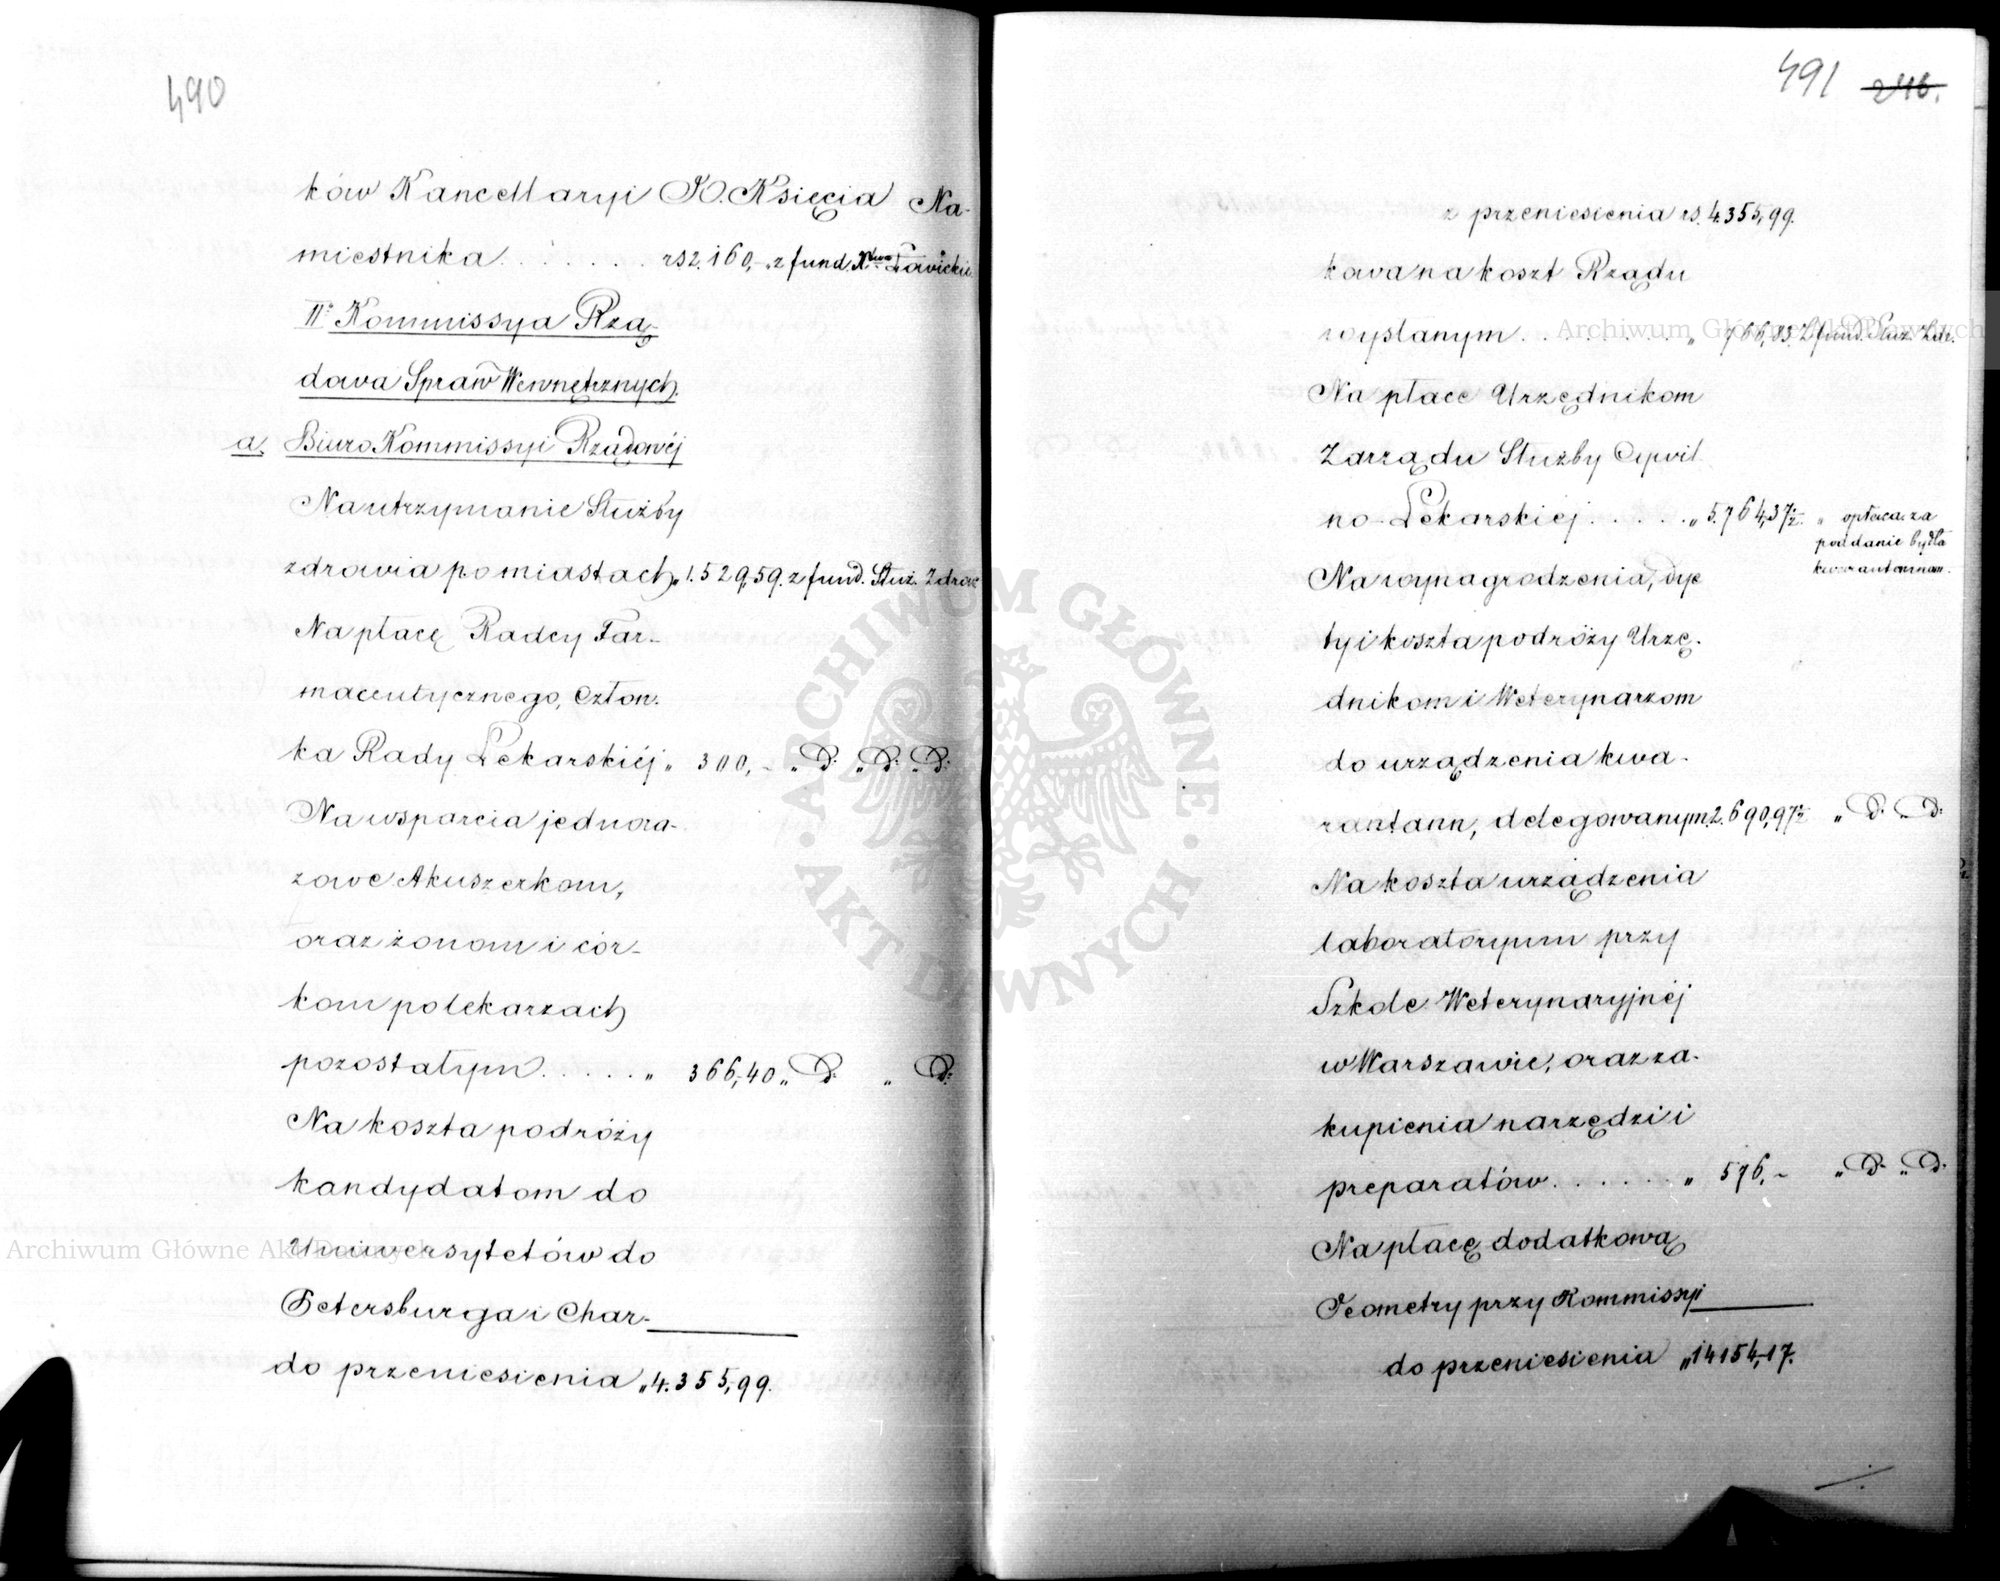 490
ków Kancellaryi JO. Księcia Na-
miestnika . . . . . . rs 2.160,- z fund. Xtwa Łowickie
IIo Kommissya Rzą-
dowa Spraw Wewnętrznych.
a. Biuro Kommissyi Rządowéj
Na utrzymanie Służby
zdrowia po miastach „ 1.529,59. z fund. Służ. Zdrow
Na płacę Radcy Far-
maceutycznego, Człon-
ka Rady Lekarskiéj „ 300,- „ D: „ D: „ D:
Na wsparcia jednora-
zowe Akuszerkom,
oraz żonom i cór-
kom po lekarzach
pozostałym . . . . . „ 366,40 „ D: „ D:
Na koszta podróży
kandydatom do
Uniwersytetów do
Petersburga i Char-
do przeniesienia „ 4.355,99.
491 246.
z przeniesienia rs. 4.355,99.
kowa na koszt Rządu
wysłanym . . . . . . . . . „ 766,83. Z fund. Służ. Zdr.
Na płace Urzędnikom
Zarządu Służby Cywil
no-Lekarskiej . . . . . „ 5.764,37½. „ opłaca. za
poddanie bydła
kwarantannom.
Na wynagrodzenia, dye
ty i koszta podróży Urzę-
dnikom i Weterynarzom
do urządzenia kwa-
rantann, delegowanym „ 2.690,97½ „ D: „ D:
Na koszta urządzenia
laboratoryum przy
Szkole Weterynaryjnéj
w Warszawie, oraz za-
kupienia narzędzi i
preparatów . . . . . . „ 576,- „ D: „ D:
Na płacę dodatkową
Jeometry przy Kommissyi
do przeniesienia „ 14154,17.
ARCHIWUM GŁÓWNE AKT DAWNYCH
Archiwum Główne Akt Dawnych
Archiwum Główne Akt Dawnych